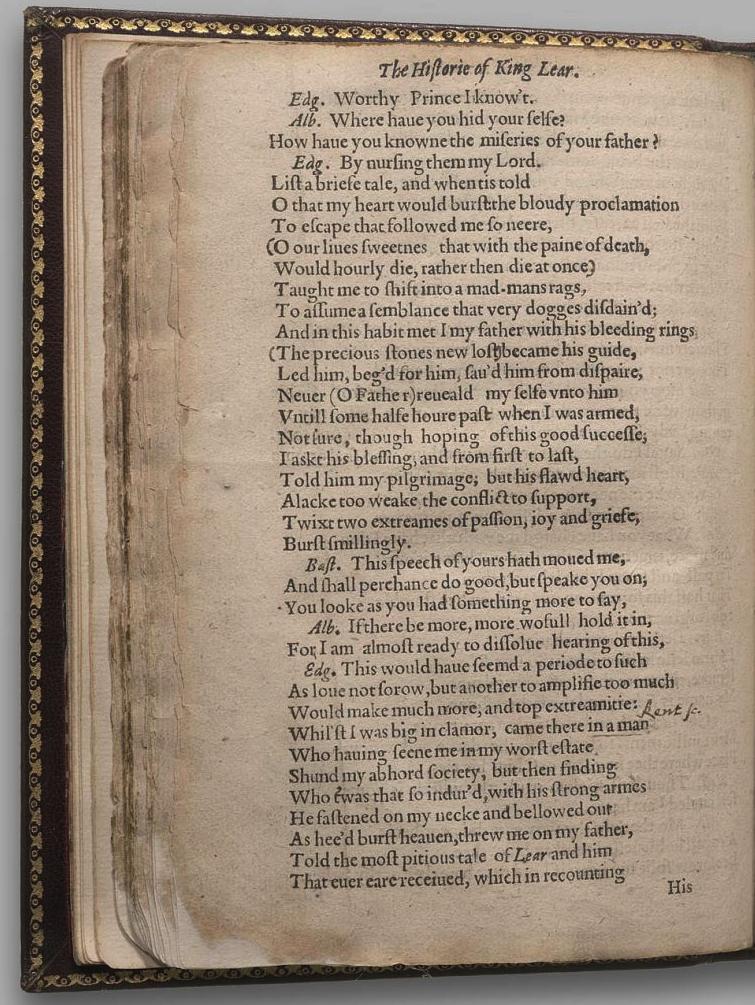 The Hiſtorie of King Lear.
Edg. Worthy Prince I know't.
Alb. Where haue you hid your ſelfe?
How haue you knowne the miſeries of your father?
Edg. By nurſing them my Lord.
Liſt a briefe tale, and when tis told
O that my heart would burſt the bloudy proclamation
To eſcape that followed me ſo neere,
(O our liues ſweetnes that with the paine of death,
Would hourly die, rather then die at once)
Taught me to ſhift into a mad-mans rags,
To aſſume a ſemblance that very dogges diſdain'd;
And in this habit met I my father with his bleeding rings,
(The precious ſtones new loſt)became his guide,
Led him, beg'd for him, ſau'd him from diſpaire,
Neuer (O Father)reueald my ſelfe vnto him
Vntill ſome halfe houre paſt when I was armed,
Not ſure, though hoping of this good ſucceſſe,
I askt his bleſſing, and from firſt to laſt,
Told him my pilgrimage; but his flawd heart,
Alacke too weake the conflict to ſupport,
Twixt two extreames of paſſion, ioy and griefe,
Burſt ſmillingly.
Baſt. This ſpeech of yours hath moued me,
And ſhall perchance do good,but ſpeake you on;
You looke as you had ſomething more to ſay,
Alb. If there be more, more wofull hold it in,
For, I am almoſt ready to diſſolue hearing of this,
Edg. This would haue ſeemd a periode to ſuch
As loue not ſorow,but another to amplifie too much
Would make much more, and top extreamitie: Kent ſc.
Whil'ſt I was big in clamor, came there in a man
Who hauing ſeene me in my worſt eſtate
Shund my abhord ſociety, but then finding
Who twas that ſo indur'd,with his ſtrong armes
He faſtened on my necke and bellowed out
As hee'd burſt heauen,threw me on my father,
Told the moſt pitious tale of Lear and him
That euer eare receiued, which in recounting
His